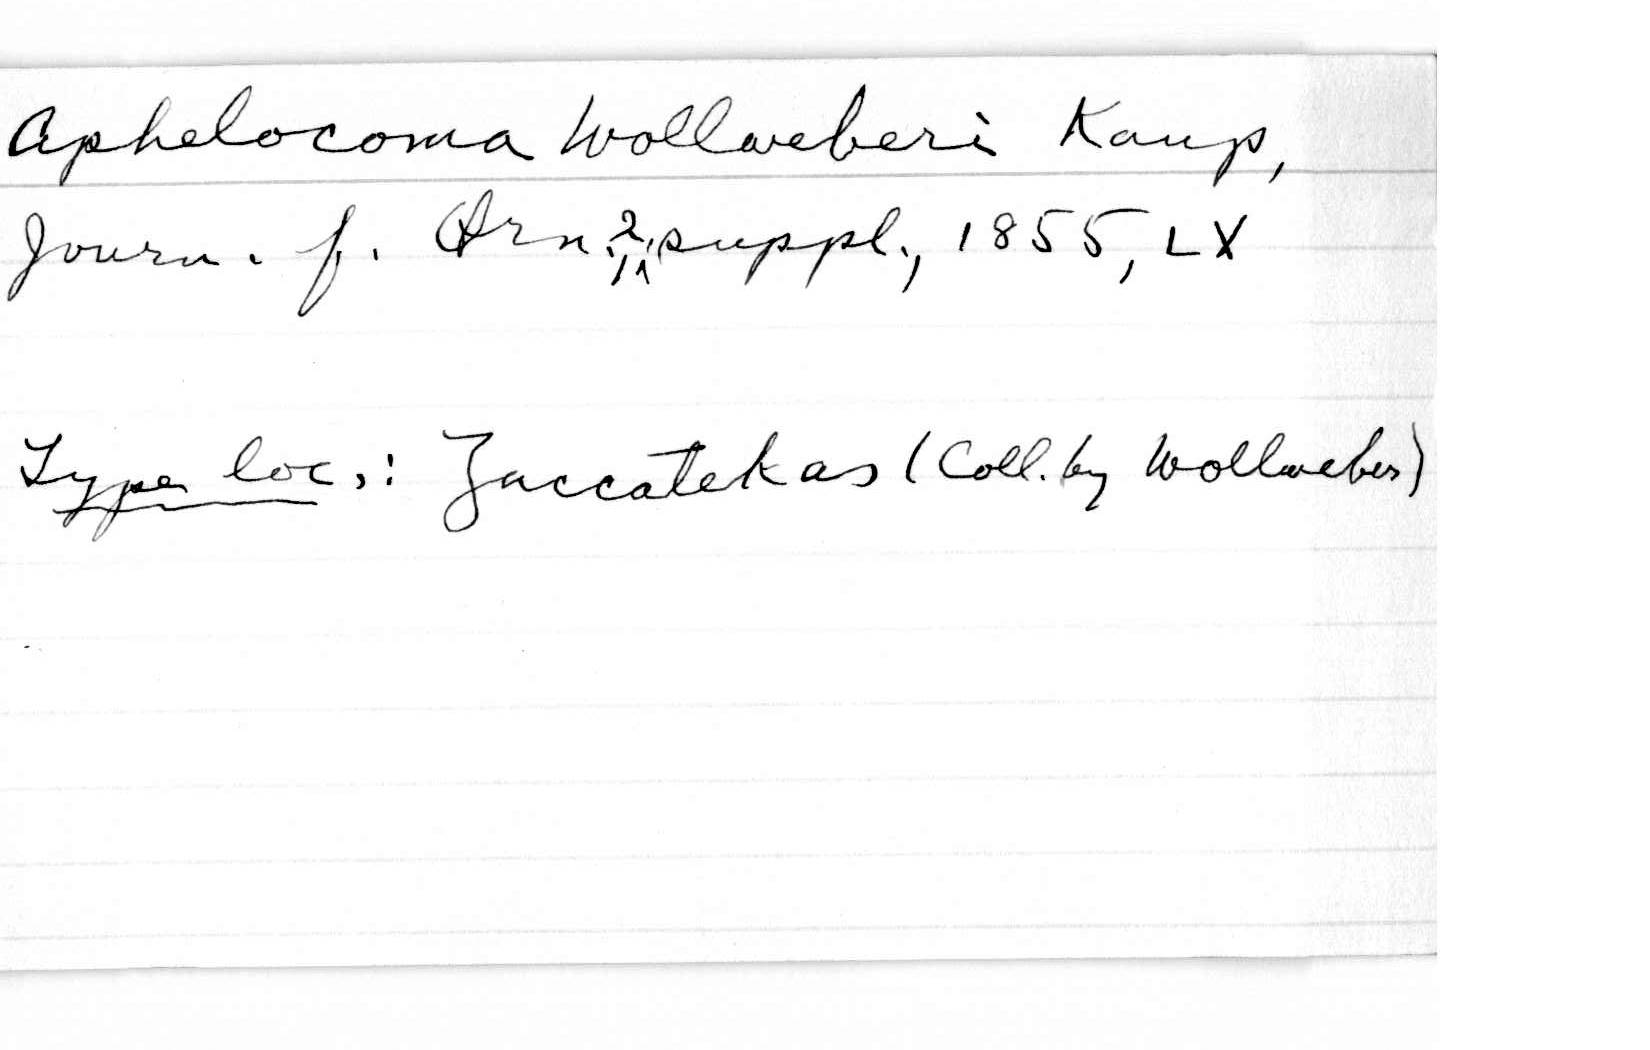 Aphelocoma Wollweberi Kaup,
Journ. f. Orn., 2, suppl., 1855, LX
Type loc.: Zaccatekas (Coll. by Wollweber)